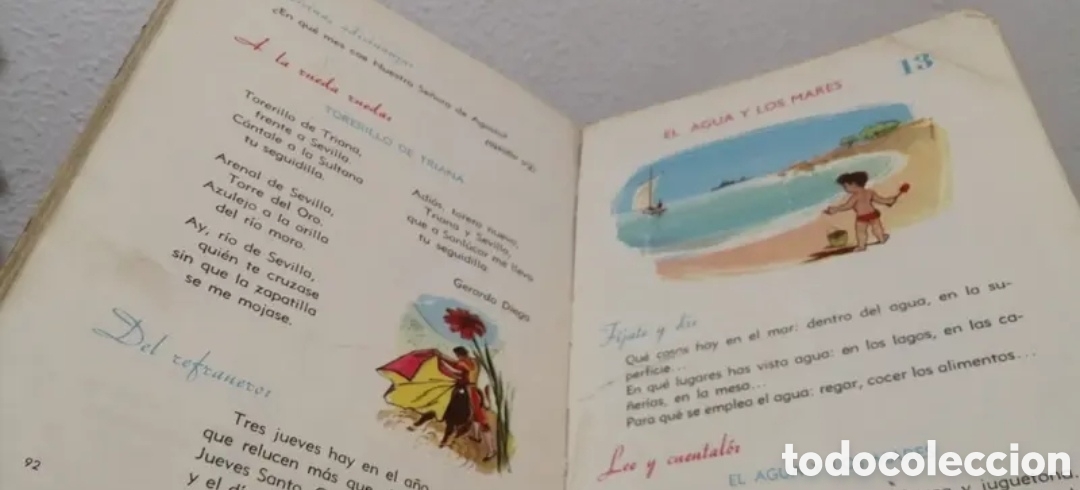 adivinanzas
¿En qué mes cae Nuestra Señora de Agosto?
A la rueda rueda
TORERILLO DE TRIANA
Torerillo de Triana,
frente a Sevilla.
Cántale a la Sultana
tu seguidilla.
Arenal de Sevilla,
Torre del Oro.
Azulejo a la orilla
del río moro.
Ay, río de Sevilla,
quién te cruzase
sin que la zapatilla
se me mojase.
Adiós, torero nuevo,
Triana y Sevilla,
que a Sanlúcar me llevo
tu seguidilla.
Gerardo Diego
Del refranero
Tres jueves hay en el año
que relucen más que
Jueves Santo
y el
92
13
EL AGUA Y LOS MARES
Fíjate y di:
Qué cosas hay en el mar: dentro del agua, en la su-
perficie...
En qué lugares has visto agua: en los lagos, en las ca-
ñerías, en la mesa...
Para qué se emplea el agua: regar, cocer los alimentos...
Lee y cuéntalo
EL AGUA
y juguetona.
todocoleccion